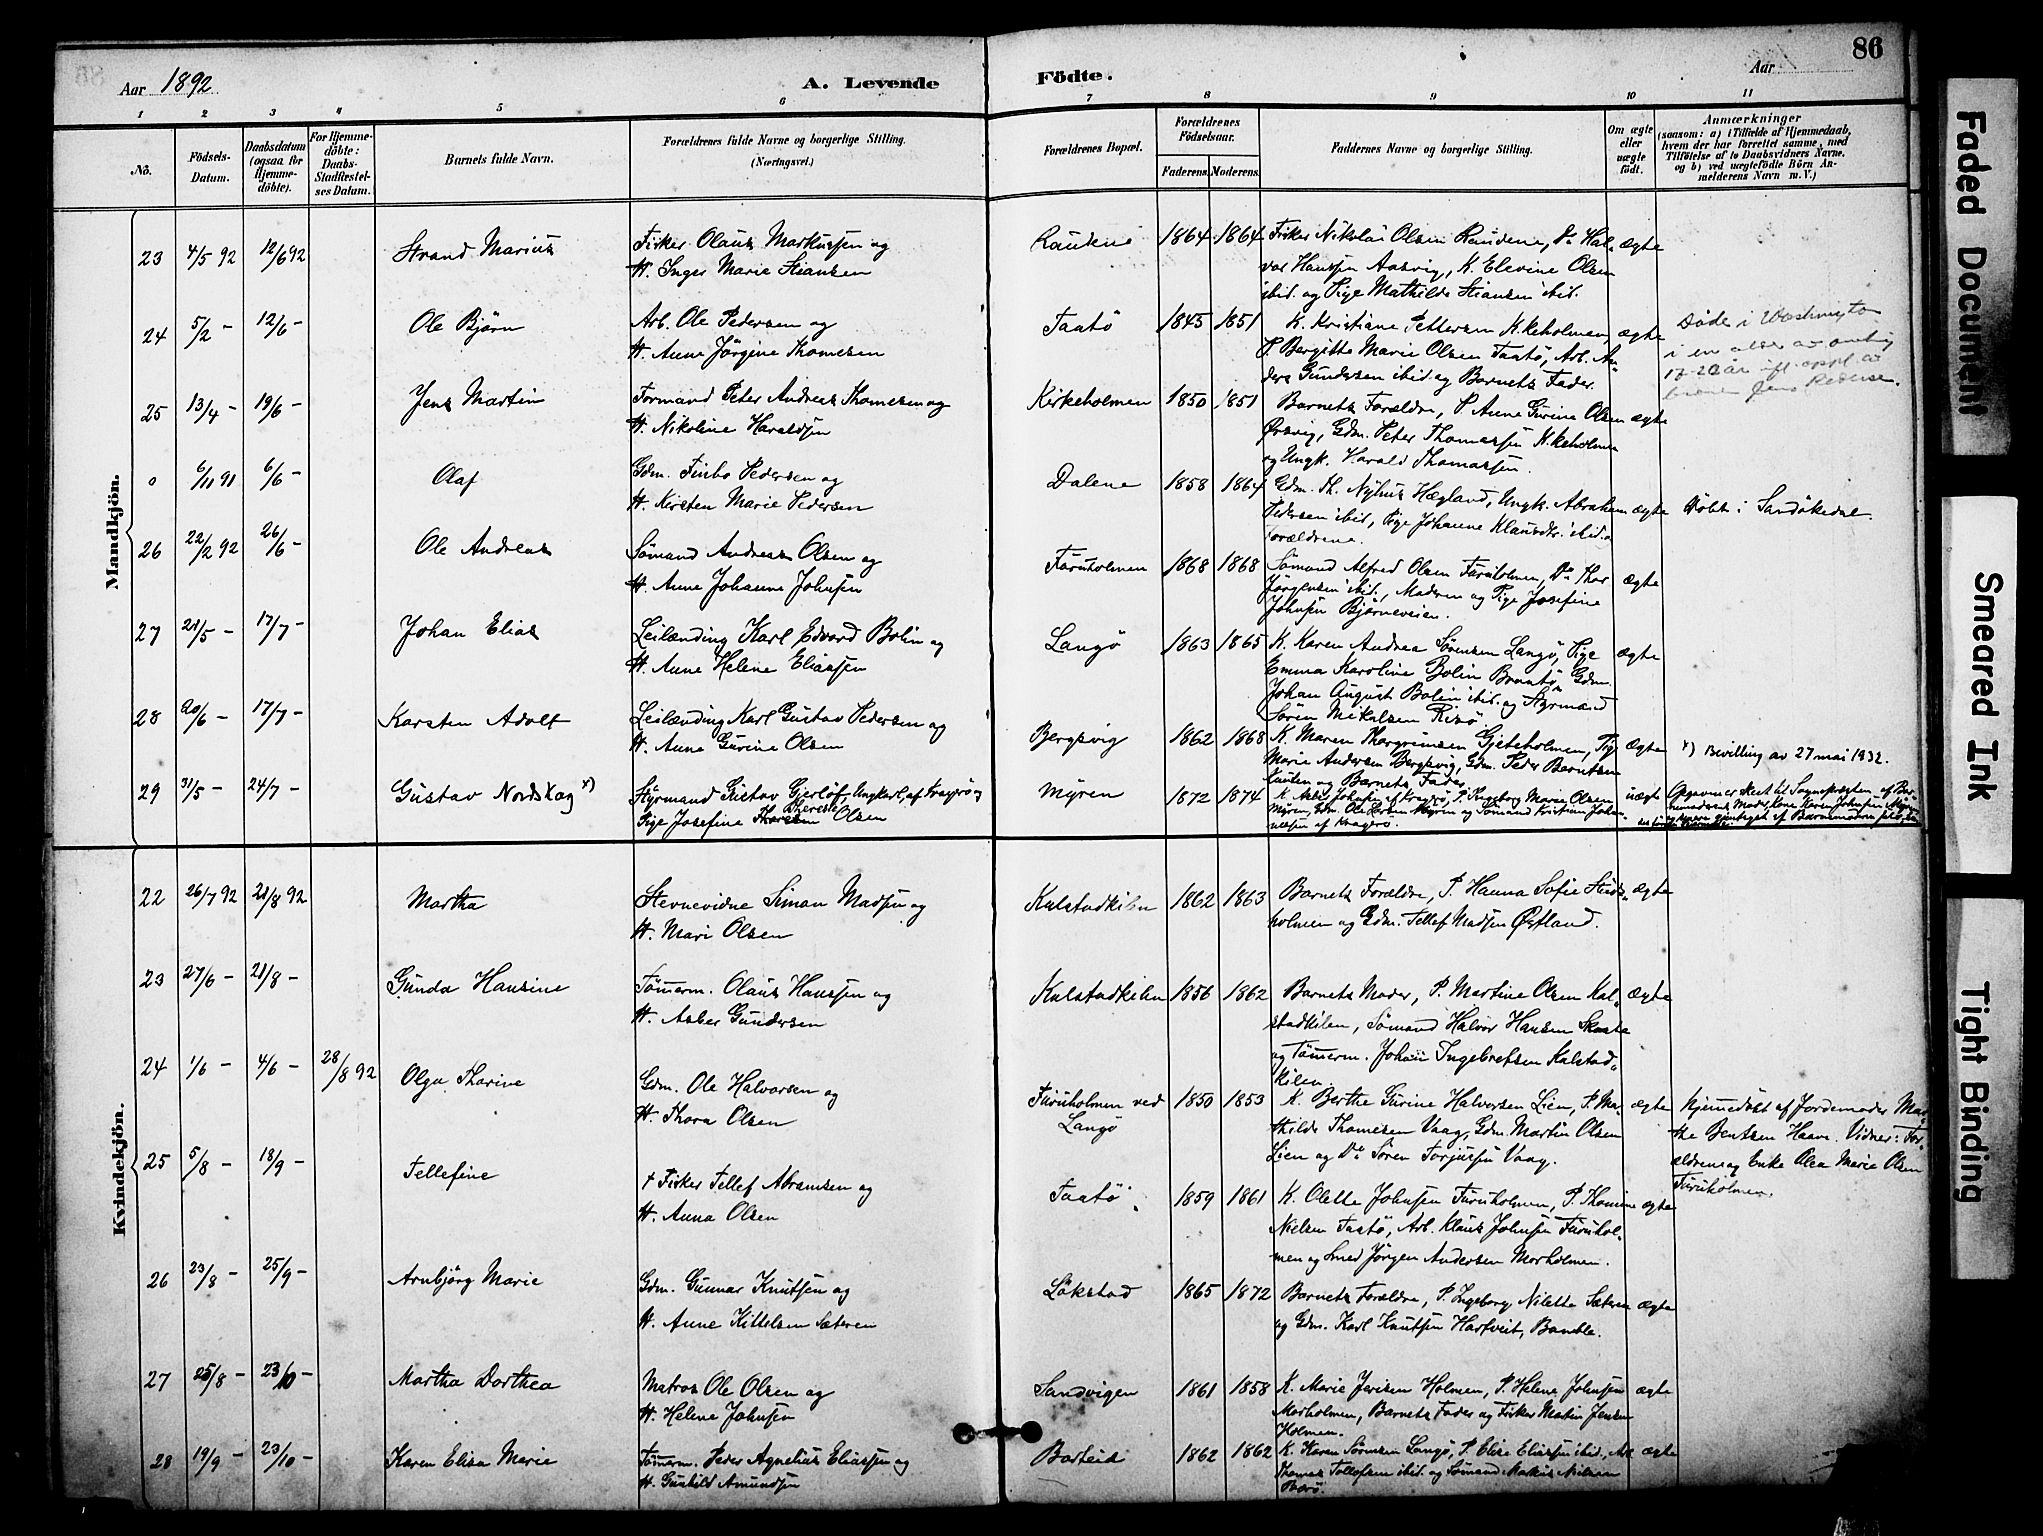 86
Aar 1892
A. Levende
Födte.
Aar
1 2 3 4 5 6 7 8 9 10 11
No.
Födsels-Datum.
Daabsdatum (ogsaa for Hjemme-döbte).
For Hjemme-döbte: Daabs-Stadfæstel-ses Datum.
Barnets fulde Navn.
Forældrenes fulde Navne og borgerlige Stilling.
(Næringsvei.)
Forældrenes Bopæl.
Forældrenes Födselsaar.
Faderens. Moderens.
Faddernes Navne og borgerlige Stilling.
Om ægte eller uægte født.
Anmærkninger
(saasom: a) i Tilfælde af Hjemmedaab, hvem der har forrettet samme, med Tilföielse af to Daabsvidners Navne, og b) ved uægtefödte Börn Anmelderens Navn m. V.)
Mandkjön.
23 4/5 92 12/6 92 Strand Marius
Fisker Olaus Markussen og
H. Inger Marie Stiansen
1864 1864 Fisker Nikolai Olsen Raudene, Do Hal-
vor Hanssen Aasvig, K. Elevine Olsen
ibid. og Pige Mathilde Stiansen ibid.
ægte
24 5/2 – 12/6 – Ole Bjørn
Arb. Ole Pedersen og
H. Anne Jörgine Thomesen
Taatö 1845 1851 K. Kristiane Pettersen K.keholmen,
P. Bergitte Marie Olsen Taatö, Arb. An-
ders Gundersen ibid. og Barnets Fader.
ægte
Døde i Washington
i en alder av omtrig
17-20 år
Jens Pedersen.
25 13/4 – 19/6 – Jens Martin
Formand Peter Andreas Thomesen og
H. Nikoline Haraldsen
Kirkeholmen 1850 1851 Barnets Forældre, P Anne Gurine Olsen
Ørsvig, Gdm. Peter Thomassen K.keholmen
og Ungk. Harald Thomassen.
ægte
0 6/11 91 6/6 – Olaf
Gdm. Finbo Pedersen og
H. Kirsten Marie Pedersen
Dalene 1858 1864 Gdm. Th. Nyhus Hægland, Ungk. Abraham
Pedersen ibid, Pige Johanne Klausdtr. ibid. og
Forældrene.
ægte Döbt i Sandökedal.
26 22/2 92 26/6 – Ole Andreas
Sömand Andreas Olsen og
H. Anne Johanne Johnsen
Furuholmen 1868 1868 Sömand Alfred Olsen Furuholmen, Do Thor
Jörgensen ibid., Moderen og Pige Josefine
Johnsen Bjørneveien.
ægte
27 21/5 – 17/7 – Johan Elias
Leilænding Karl Edvard Bolin og
H. Anne Helene Eliassen
Langö 1863 1865 K. Karen Andrea Sørensen Langö, Pige
Emma Karoline Bolin Braatö, Gdm.
Johan August Bolin ibid. og Styrmand
Sören Mikalsen Risö.
ægte
28 20/6 – 17/7 – Karsten Adolf
Leilænding Karl Gustav Pedersen og
H. Anne Gurine Olsen
Bergsvig 1862 1868 K. Maren Thorgrimsen Gjeteholmen, Pige
Marie Andersen Bergsvig, Gdm. Peder Berntsen
og Barnets Fader.
ægte x) Bevilling av 27 mai 1932.
29 31/5 – 24/7 – Gustav Nordskag x)
Styrmand Gustav Gjerlöf, Ungkarl, af Kragerö og
Pige Josefine Therese Olsen
Myren 1872 1874 K. Asber Johnsen af Kragerö, P. Ingeborg Marie Olsen
Myren, Gdm. Ole Larsen Myren og Sömand Kristian Johan-
nesen af Kragerö.
uægte
Opgaven er skeet til Sognepræsten af Bar-
nemoderens Moder, Kone Karen Johnsen Myren
Kvindekjön.
22 26/7 92 21/8 92 Martha
Stevnevidne Simon Madsen og
H. Mari Olsen
Kalstadkilen 1862 1863 Barnets Forældre, P. Hanna Sofie Stids-
holmen og Gdm. Tellef Madsen Østland.
ægte
23 27/6 – 21/8 – Gunda Hansine
Tömerm. Olaus Hanssen og
H. Asber Gundersen
Kalstadkilen 1856 1862 Barnets Moder, P. Martine Olsen Kal-
stadkilen, Sömand Halvor Hansen Skaate
og Tömerm. Johan Ingebretsen Kalstad-
kilen.
ægte
24 1/6 – 4/6 – 28/8 92 Olga Thorine
Gdm. Ole Halvorsen og
H. Thora Olsen
Furuholmen ved Langö
1850 1853 K. Berthe Gurine Halvorsen Lien, P. Ma-
thilde Thomesen Vaag, Gdm. Martin Olsen
Lien og Do Sören Torjussen Vaag.
ægte
Hjemmedöbt af Jordemoder Mar-
the Bentsen Haave. Vidner: For-
ældrene og Enke Olea Marie Olsen
Furuholmen.
25 5/8 – 18/9 – Tellefine
+ Fisker Tellef Abramsen og
H. Anna Olsen
Taatö 1859 1861 K. Olette Johnsen Furuholmen, P. Thomine
Nielsen Taatö, Arb. Klaus Johnsen Furuhol-
men og Smed Jörgen Andersen Morholmen.
ægte
26 23/8 – 25/9 – Arnbjörg Marie
Gdm. Gunnar Knutsen og
H. Anne Kittelsen Sæteren
Lökstad 1865 1872 Barnets Forældre, P. Ingeborg Nilette Sæteren
og Gdm. Karl Knutsen Hartveit, Bamble.
ægte
27 25/8 – 23/10 – Martha Dorthea
Matros Ole Olsen og
H. Helene Johnsen
Sandvigen 1861 1858 K. Marie Jensen Holmen, P. Helene Johnsen
Morholmen, Barnets Fader og Fisker Martin Jensen
Holmen.
ægte
28 19/9 – 23/10 – Karen Elisa Marie
Tömerm. Peder Agnelius Eliassen og
H. Gunhild Amundsen
1862 1862 K. Karen Sörensen Langö, P. Elise Eliassen ibid., Arb.
Thomas Tollefsen ibid. og Sömand Markus Nielsen
ægte
Faded Document
Smeared Ink
Tight Binding